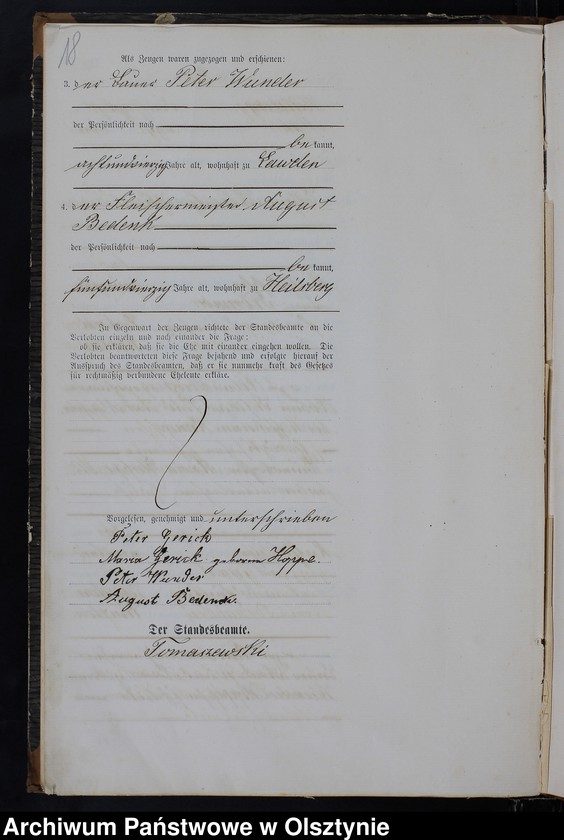 18
Als Zeugen waren zugezogen und erschienen:
3. der Bauer Peter Wunder
der Persönlichkeit nach
be kannt,
achtundvierzig Jahre alt, wohnhaft zu Lawden
4. der Fleischermeister August
Bedenk
der Persönlichkeit nach
be kannt,
fünfundvierzig Jahre alt, wohnhaft zu Heilsberg
In Gegenwart der Zeugen richtete der Standesbeamte an die
Verlobten einzeln und nach einander die Frage:
ob sie erklären, daß sie die Ehe mit einander eingehen wollen. Die
Verlobten beantworteten diese Frage bejahend und erfolgte hierauf der
Ausspruch des Standesbeamten, daß er sie nunmehr kraft des Gesetzes
für rechtmäßig verbundene Eheleute erkläre.
Vorgelesen, genehmigt und unterschrieben
Peter Gerick
Maria Gerick geboren Hoppe.
Peter Wunder
August Bedenk.
Der Standesbeamte.
Tomaszewski
Archiwum Państwowe w Olsztynie